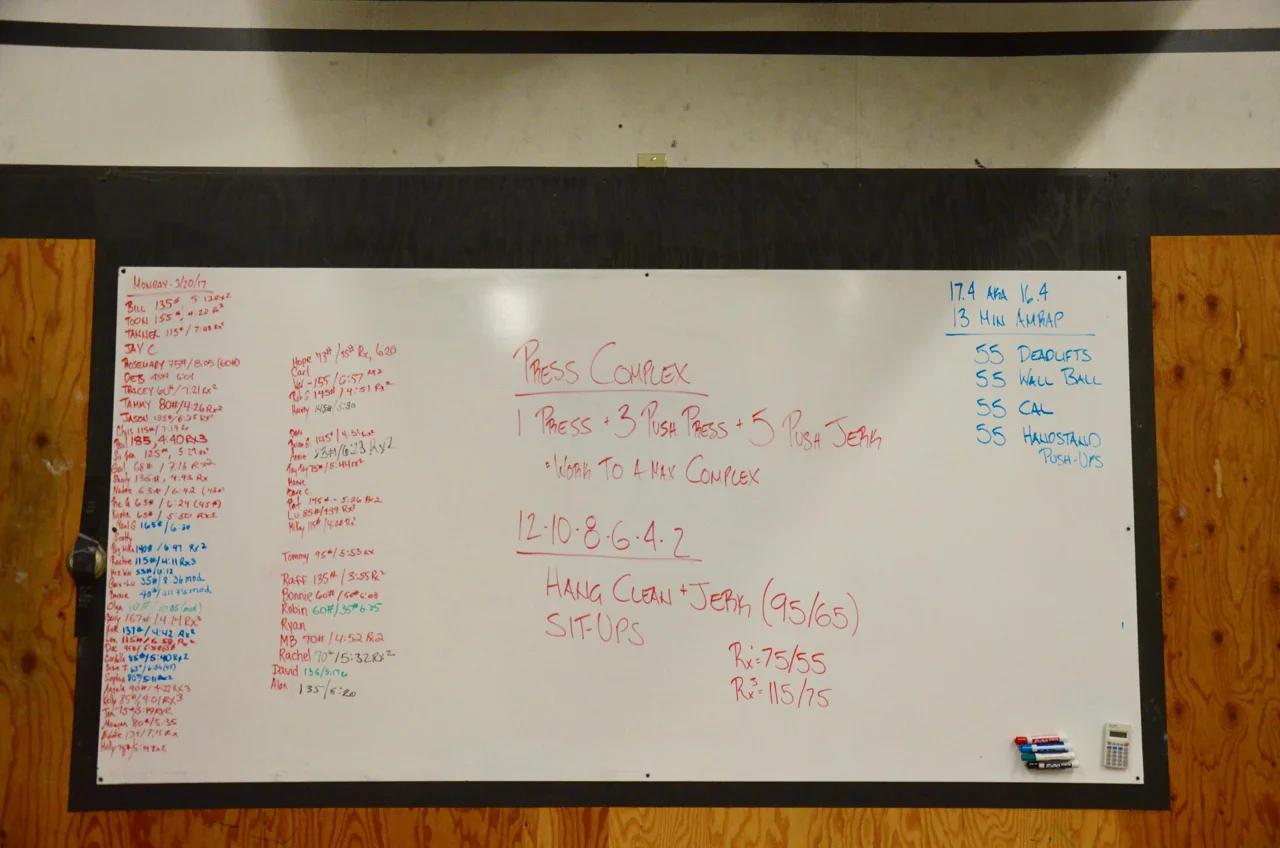 MONDAY - 3/20/17
BILL 135# 5:12 RX2
TOON 155#, 4:20 Rx²
TANNER 115# / 7:48 Rx²
JAY C
ROSEMARY 75# / 8:05 (60#)
DEB 45# 6:01
TRACEY 60# / 7:21 Rx²
TAMMY 80# / 4:26 Rx2
JASON
Chris 115# / 7:19 Rx
185, 4:40 RX3
125#,
Gail 68# / 7:16 Rx2
135#, 4:43 Rx
63# / 6:42 (42#)
63# / 6:24 (45#)
65# / 5:50 RX2
Paul G 165# / 6:20
Scotty
140# / 6:47 Rx2
Rachel 115# / 4:11 Rx3
53# / 6:12
35# / 8:36 mod
40# / mod
Olga
167# / 4:14 Rx3
137# / 4:42 Rx2
115# /
Doc
85# / 5:40 Rx2
Sophia 80# / 5:11 Rx2
Angela 90# / 4:22 RX3
Kelly 85# / 4:01 RX3
Meagan 80# / 5:35
Holly 75#
Hope 73# / 45# Rx, 6:20
Carl
Val - 155 / 6:57 Rx2
Rob G 145# / 4:51 Rx2
Harvey 145# / 5:30
Dan
145# / 4:36
Annie 53# / 6:23 Rx2
75# / 5:44 Rx2
Dave C.
Pat 145# - 5:26 Rx2
Lu 85# / 4:39 Rx3
Mikey 115# / 4:00 Rx2
Tommy 95# / 5:53 Rx
Raff 135# / 3:55 Rx2
Bonnie 60# / 50# 6:08
Robin 60# / 35# 6:25
Ryan
MB 70# / 4:52 Rx2
Rachel 70# / 5:32 Rx2
David 135 / 5:17
Alan 135 / 5:20
PRESS COMPLEX
1 PRESS + 3 PUSH PRESS + 5 PUSH JERK
• WORK TO A MAX COMPLEX
12·10·8·6·4·2
HANG CLEAN + JERK (95/65)
SIT-UPS
Rx¹ = 75/55
Rx³ = 115/75
17.4 AKA 16.4
13 MIN AMRAP
55 DEADLIFTS
55 WALL BALL
55 CAL
55 HANDSTAND
PUSH-UPS